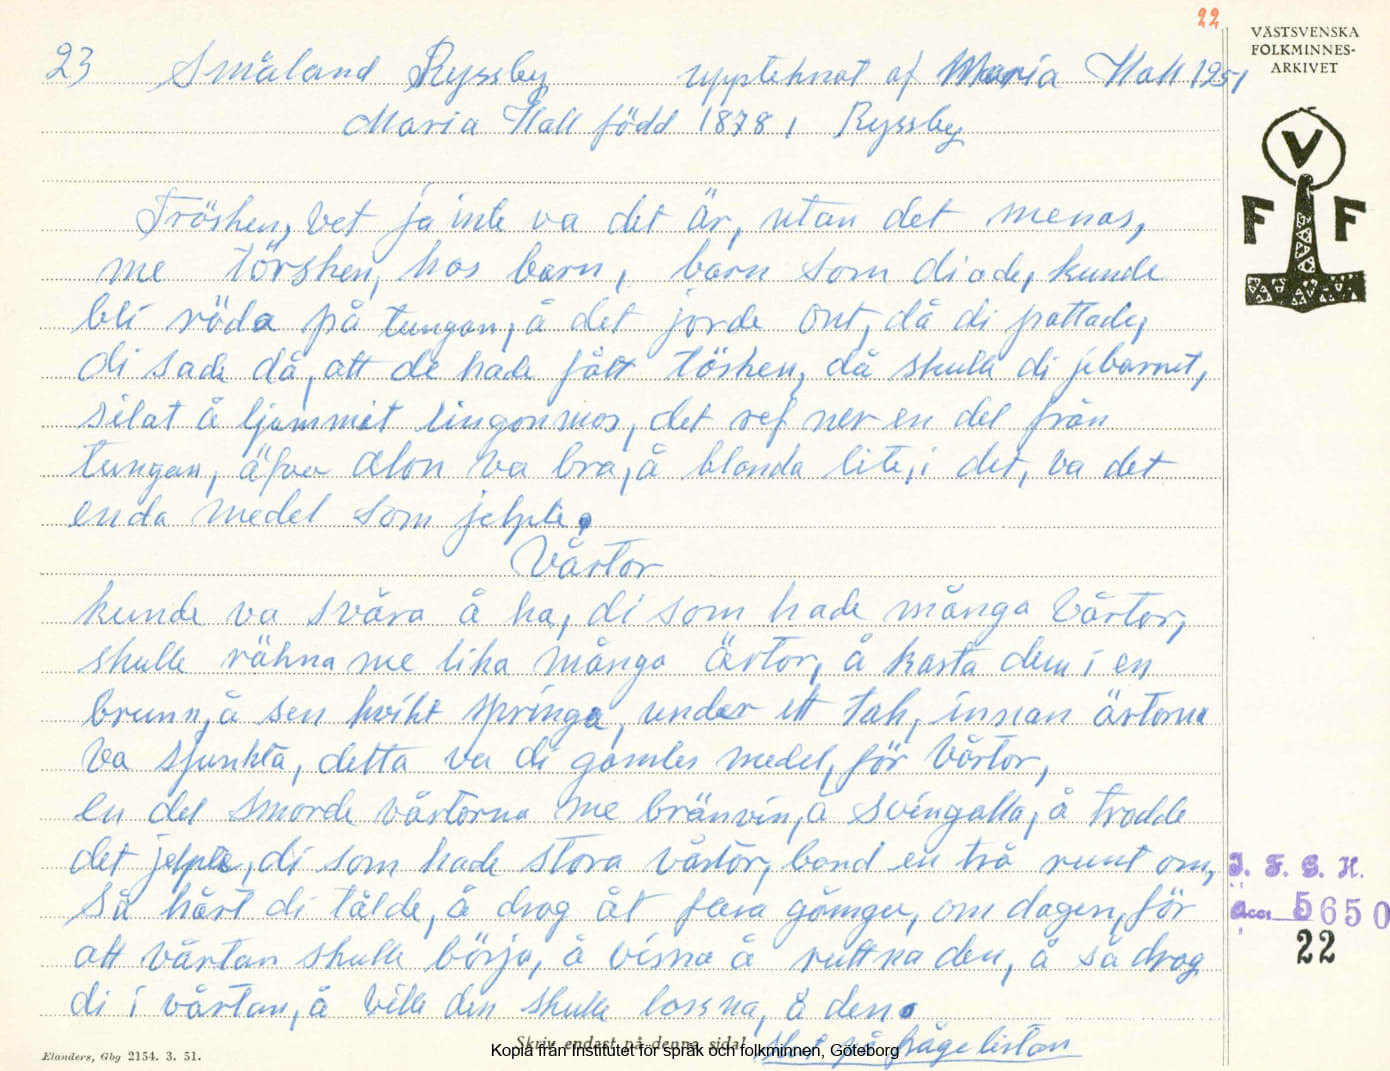 22
VÄSTSVENSKA
FOLKMINNES-
ARKIVET
V
F F
23 Småland Ryssby uppteknat af Maria Hall 1951
Maria Hall född 1878, Ryssby
Tröshen, vet ja inte va det är, utan det menas,
me törshen, hos barn, barn som diade, kunde
bli röda på tungan, å det jorde ont, då di pattade,
di sade då, att de hade fått töshen, då skulle di je barnet,
silat å ljummit lingonmos, det ref ner en del från
tungan, äfven alon va bra, å blanda lite, i det, va det
enda medel som jelpte.
Vårtor
kunde va svåra å ha, di som hade många vårtor,
skulle räkna me lika många ärtor, å kasta dem i en
brunn, å sen kvikt springa, under ett tak, innan ärtorna
va sjunkta, detta va di gamles medel, för vårtor,
en del smorde vårtorna me bränvin, å svingalla, å trodde
det jelpte, di som hade stora vårtor, band en trå runt om,
så hårt di tålde, å drog åt flera gånger, om dagen, för
att vårtan skulle börja, å visna å ruttna den, å så drog
di i vårtan, å ville den skulle lossna, å den.
Slut på frågelistan
Skriv endast på denna sida!
Kopia från Institutet för språk och folkminnen, Göteborg
Elanders, Gbg 2154. 3. 51.
I. F. G. H.
Acc. 5650
22